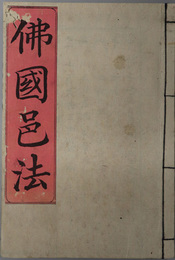 佛國邑法